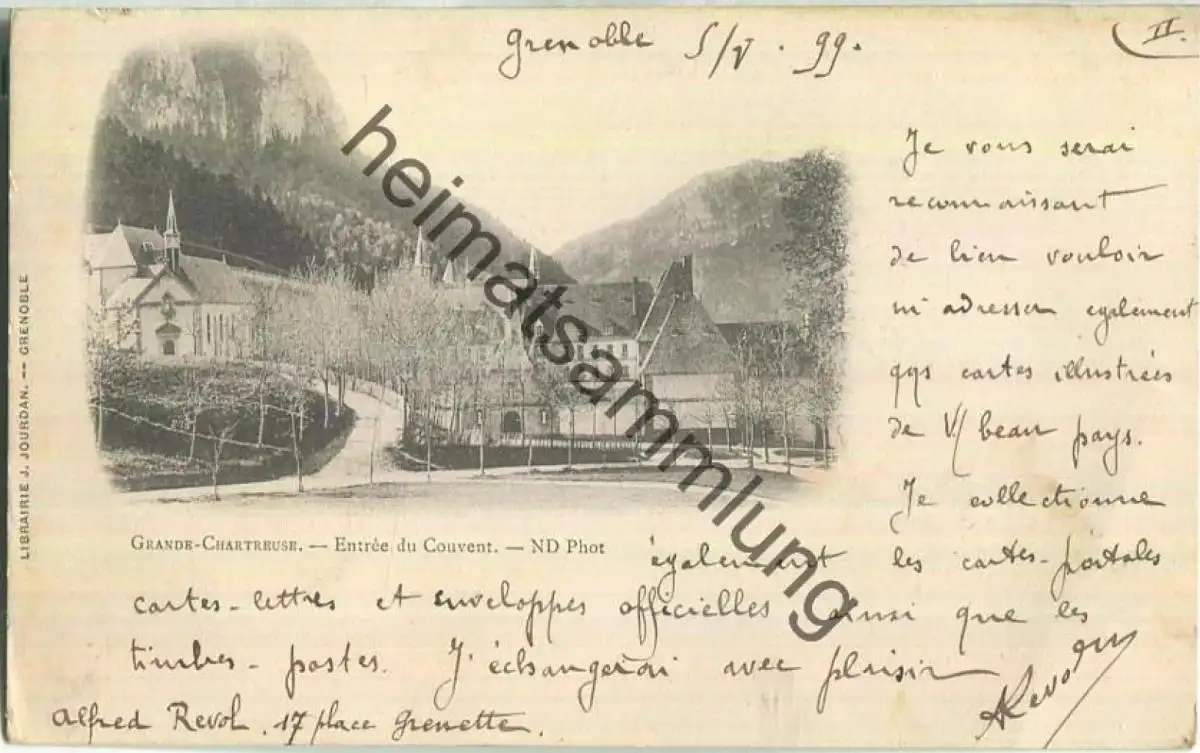 Grenoble 5/V. 99.
II.
Je vous serai
reconnaissant
de bien vouloir
m'adresser également
qqs cartes illustrées
de V/ beau pays.
Je collectionne
également les cartes-postales
cartes-lettres et enveloppes officielles ainsi que les
timbres-postes. J'échangerai avec plaisir
ARevol
Alfred Revol. 17 place Grenette.
GRANDE-CHARTREUSE. — Entrée du Couvent. — ND Phot
LIBRAIRIE J. JOURDAN. — GRENOBLE
heimatsammlung